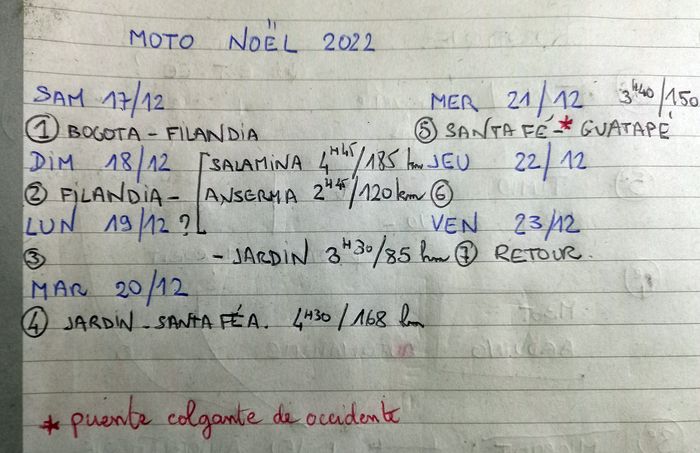 MOTO NOËL 2022
SAM 17/12
① BOGOTA - FILANDIA
DIM 18/12
② FILANDIA - [ SALAMINA 4H45/185 km
ANSERMA 2H45/120 km
LUN 19/12 ?
③ - JARDIN 3H30/85 km
MAR 20/12
④ JARDIN - SANTA FÉA. 4H30/168 km
MER 21/12 3H40/150
⑤ SANTA FÉ -* GUATAPÉ
JEU 22/12
⑥
VEN 23/12
⑦ RETOUR.
* puente colgante de occidente